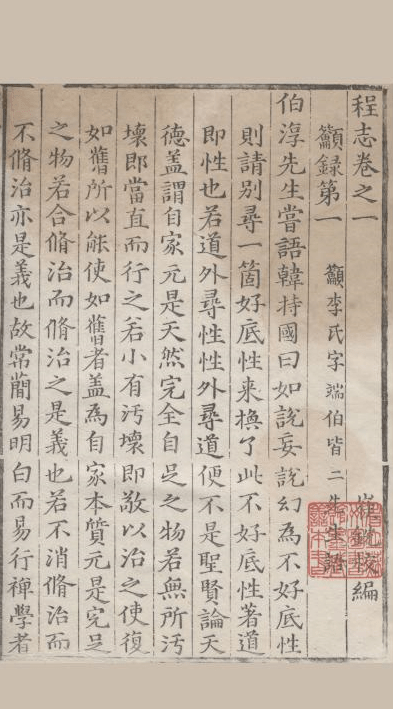 程志卷之一
籲録第一 籲李氏字端伯皆二先生語 編
伯淳先生嘗語韓持國曰如說妄說幻為不好底性
則請别尋一箇好底性來換了此不好底性著道
即性也若道外尋性性外尋道便不是聖賢論天
德盖謂自家元是天然完全自足之物若無所污
壞即當直而行之若小有污壞即敬以治之使復
如舊所以能使如舊者盖為自家本質元是完足
之物若合脩治而脩治之是義也若不消脩治而
不脩治亦是義也故常簡易明白而易行禅學者